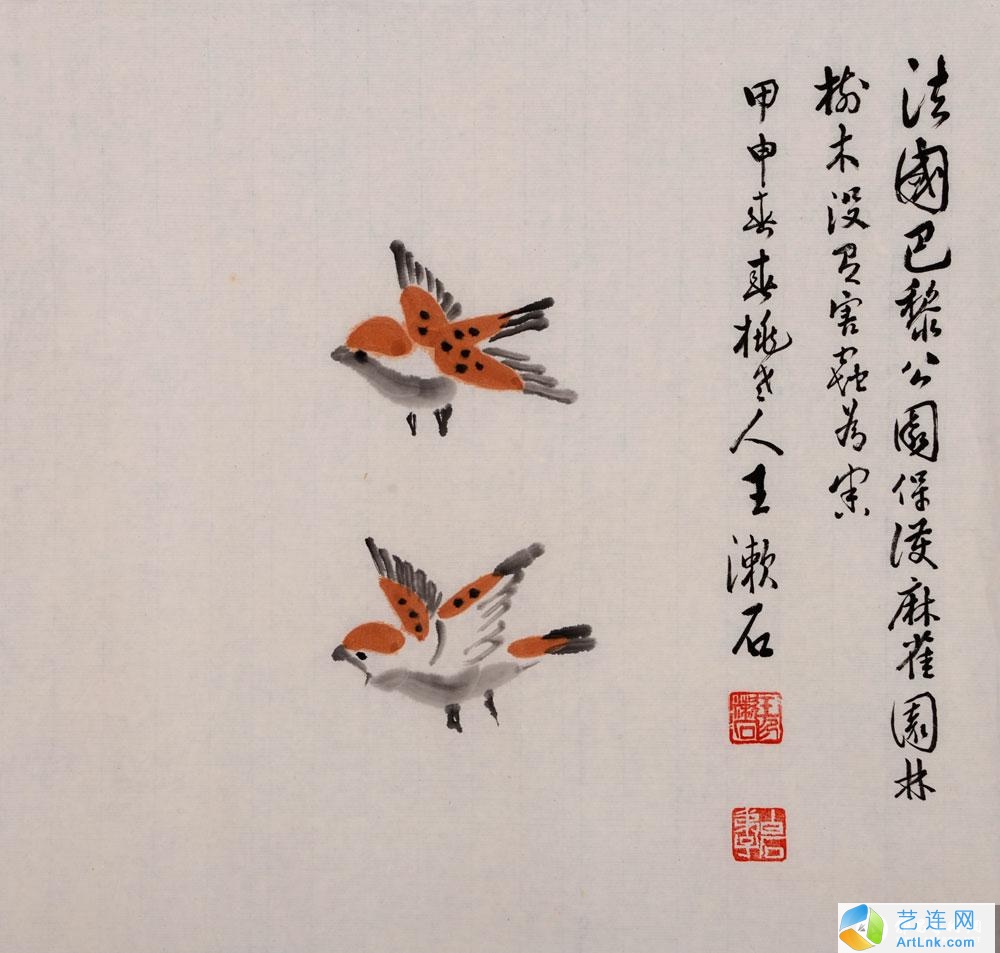 法國巴黎公園保護麻雀園林
樹木沒有害蟲為害
甲申春春桃老人王漱石
艺连网
ArtLnk.com